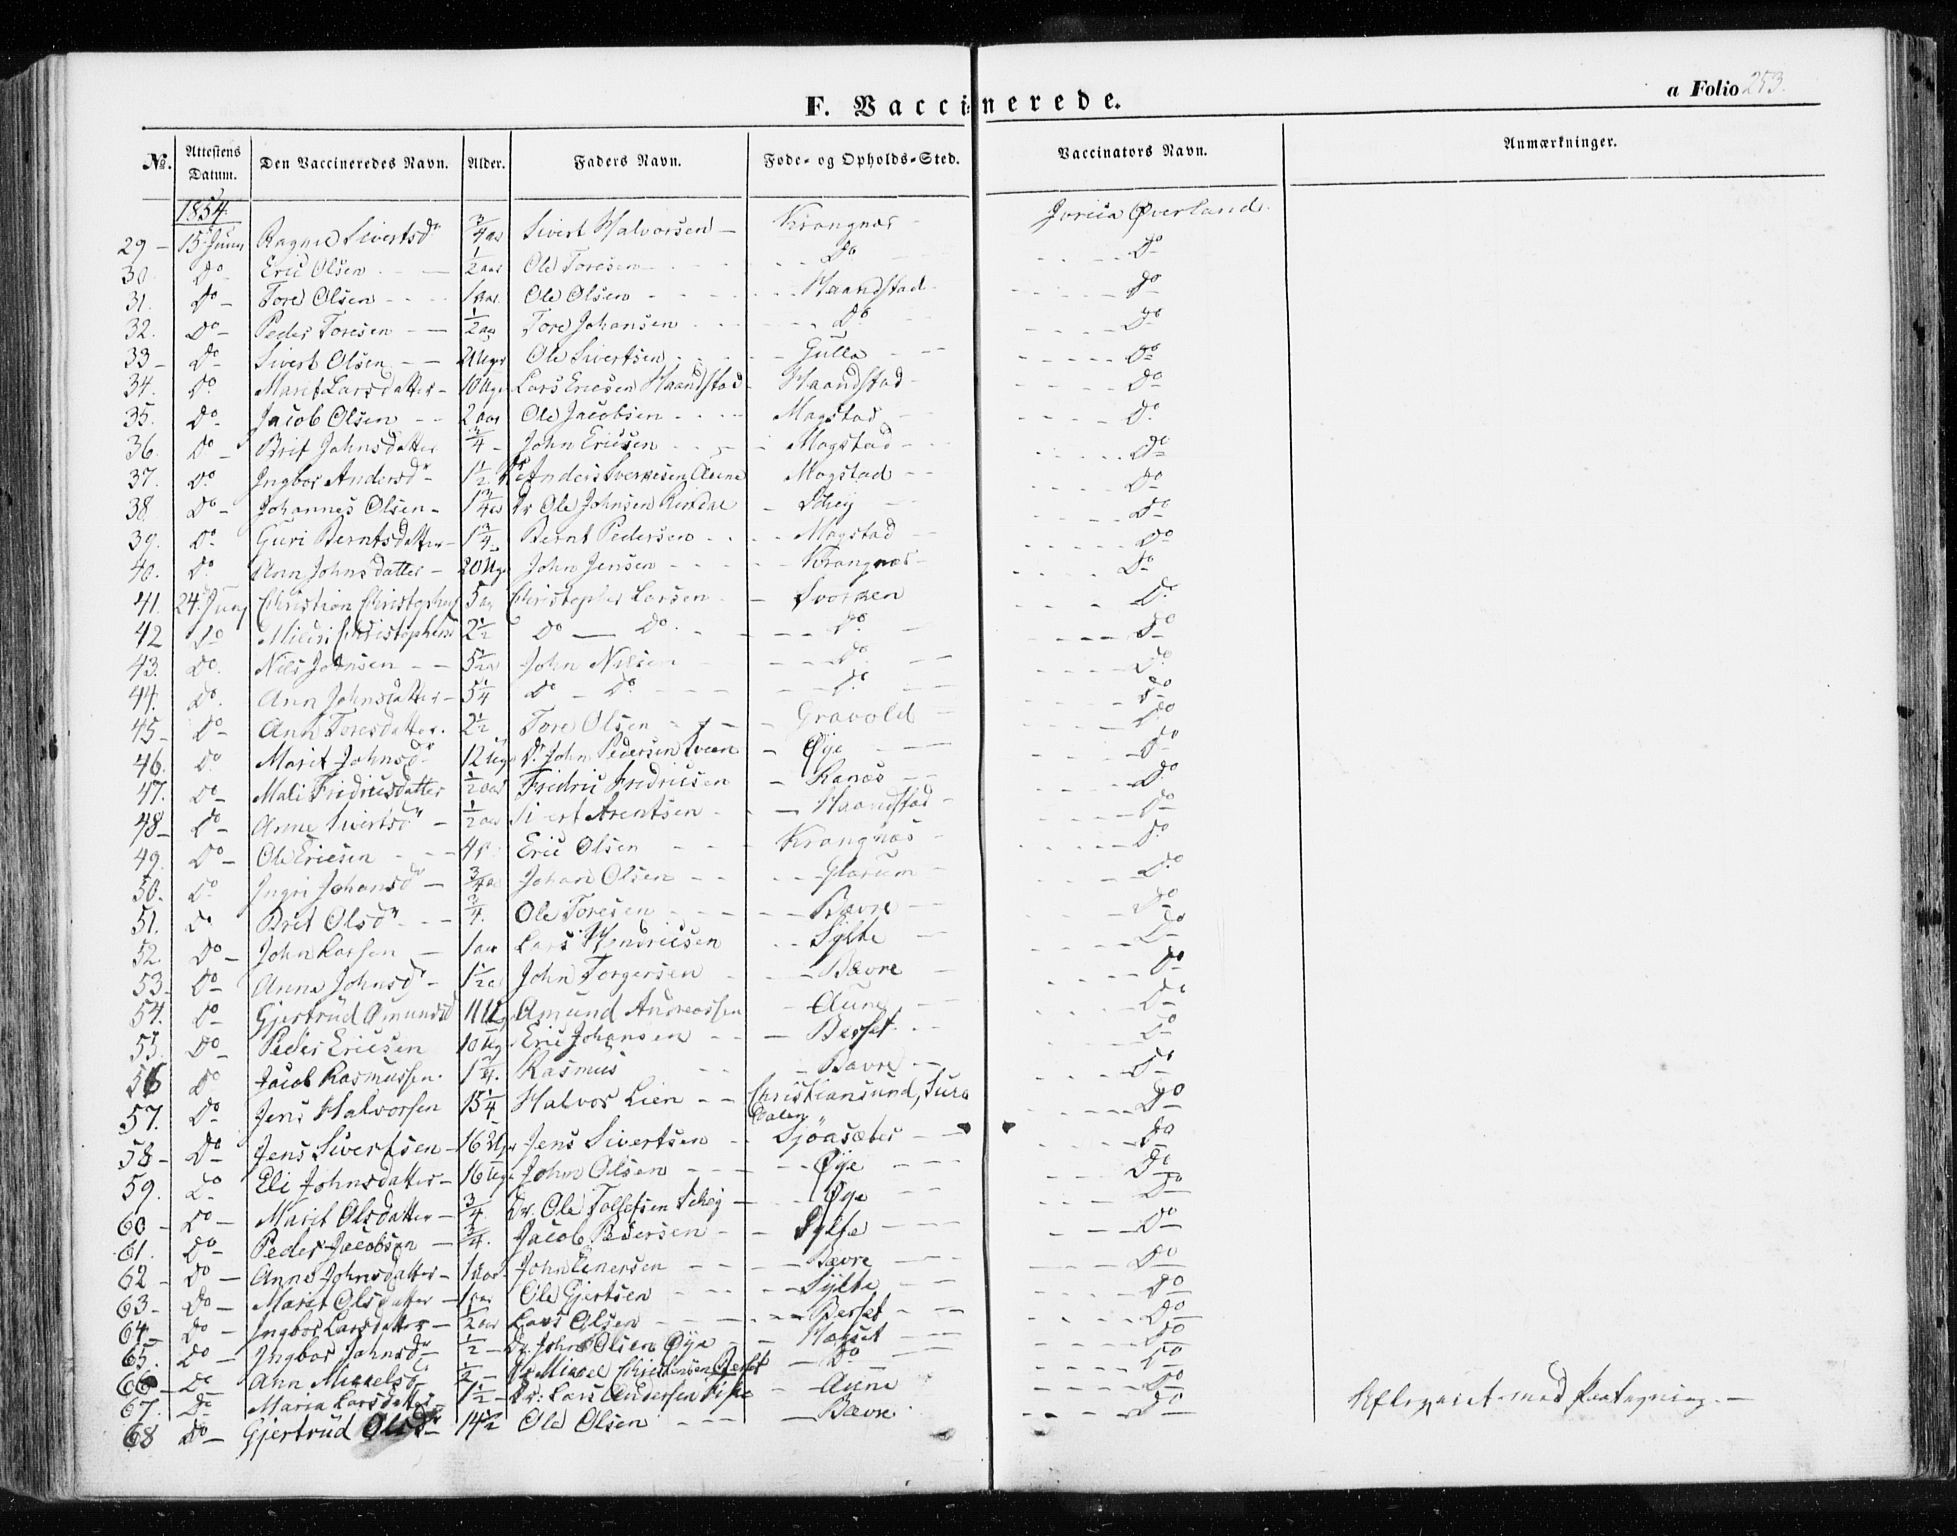 F. Vaccinerede.
a Folio 253.
No. Attestens Datum. Den Vaccineredes Navn. Alder. Faders Navn. Føde- og Opholds-Sted. Vaccinators Navn. Anmærkninger.
1854
29 - 15 Juny Ragnil Sivertsdr 3/4 aar Sivert Halvorsen - Krangnæs Øverland
30. Do Eric Olsen 1/2 aar Ole Toresen Do Do
31. Do Tore Olsen 1 aar Ole Olsen Haandstad Do
32. Do Peder Toresen 1/2 aar Tore Johansen Do Do
33 - Do Sivert Olsen Ole Sivertsen Gulla Do
34. Do Marit Larsdatter 10 Uger Lars Ericsen Haandstad Haandstad Do
35. Do Jacob Olsen 2 aar Ole Jacobsen Mogstad Do
36. Do Brit Johnsdatter 3/4 John Ericsen Mogstad Do
37. Do Ingbor Andersdr 1 1/2 Anders Aune Mogstad Do
38. Do Johannes Olsen 1 3/4 Dr Ole Johnsen Rindal Do
39. Do Guri Berntsdatter 1 3/4 Bernt Pedersen Mogstad Do
40. Do Ann Johnsdatter 20 Uger John Jensen Krangnæs Do
41. 24. Juny Christian 5 aar Christopher Larsen Svorken Do
42 Do 2 1/2 Do - Do Do Do
43. Do Nils Johnsen 5 1/2 aar John Nilsen Do Do
44. Do Ann Johnsdatter 5 1/4 Do - Do Do Do
45 - Do Ann Toresdatter 2 1/2 Tore Olsen Gravold Do
46. Do Marit Johnsdr 12 Uger Dr John Pedersen Øye Do
47. Do Mali Fridricsdatter 1/2 aar Fredric Fredricsen Ranæs Do
48 - Do Anne Sivertsdr 1/2 aar Sivert Arentsen Haandstad Do
49. Do Ole Ericsen Eric Olsen Krangnæs Do
50. Do Ingri Johansdr 3/4 aar Johan Olsen Glærum Do
51. Do Brit Olsdr 3/4. Ole Toresen Bævre Do
52. Do John Larsen 1 aar Lars Hendricsen Sylte Do
53 - Do Anne Johnsd 1 1/2 John Torgersen Bævre Do
54. Do Gjertrud Amundsd 11 U Amund Andreassen Aune Do
55. Do Peder Ericsen 10 Ug Eric Johansen Bærset Do
56 Do Jacob Rasmussen 1 3/4. Rasmus Bævre Do
57. Do Jens Halvorsen 15 1/4 Halvor Lien Christiansund, Surendalen Do
58 - Do Jens Sivertsen 16 Uger Jens Sivertsen Sjöasæter Do
59. Do Eli Johnsdatter 16 Uger John Olsen Øye Do
60 - Do Marit Olsdatter 3/4. Dr. Ole Tollefsen Schej Øye Do
61. Do Peder Jacobsen 3/4. Jacob Pedersen Sylte Do
62 - Do Anne Johnsdatter 1 aar John Einersen Bævre Do
63 - Do Marit Olsdatter 1 aar Ole Gjertsen Sylte Do
64 - Do Ingbor Larsdatter 1/2 aar Lars Olsen Bærset Do
65. Do Ingbor Johnsdr 1/2 Dr. John Olsen Øye Do
66 - Do Ann Mikkelsd 1/2 Dr Mikkel Do Do
67. Do Maria Larsdatter 1 1/2 Dr: Lars Andersen Aune Do
68 Do Gjertrud Olsdr 14 1/2 Ole Olsen Bævre Do med Paategning. -